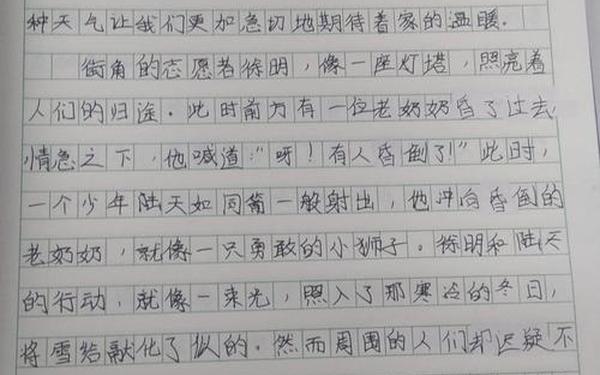 种天气让我们更加急切地期待着家的温暖.
街角的志愿者徐明，像一座灯塔，照亮着
人们的归途.此时前方有一位老奶奶昏了过去,
情急之下，他喊道:"呀！有人昏倒了!"此时,
一个少年陆天如同箭一般射出，他冲向昏倒的
老奶奶，就像一只勇敢的小狮子.徐明和陆天
的行动，就像一束光，照入了那寒冷的冬日，
将雪给融化了似的.然而周围的人们却迟疑不